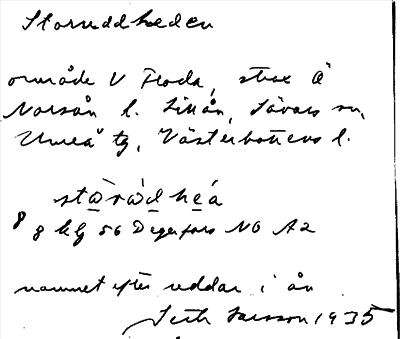 Storuddheden
område V Floda, strax Ö
Norsån l. Lillån, Sävars sn,
Umeå tg, Västerbottens l.
stārādheá
8 8 kly 56 Degerfors NO A2
namnet efter uddar i ån
Seth Larsson 1935